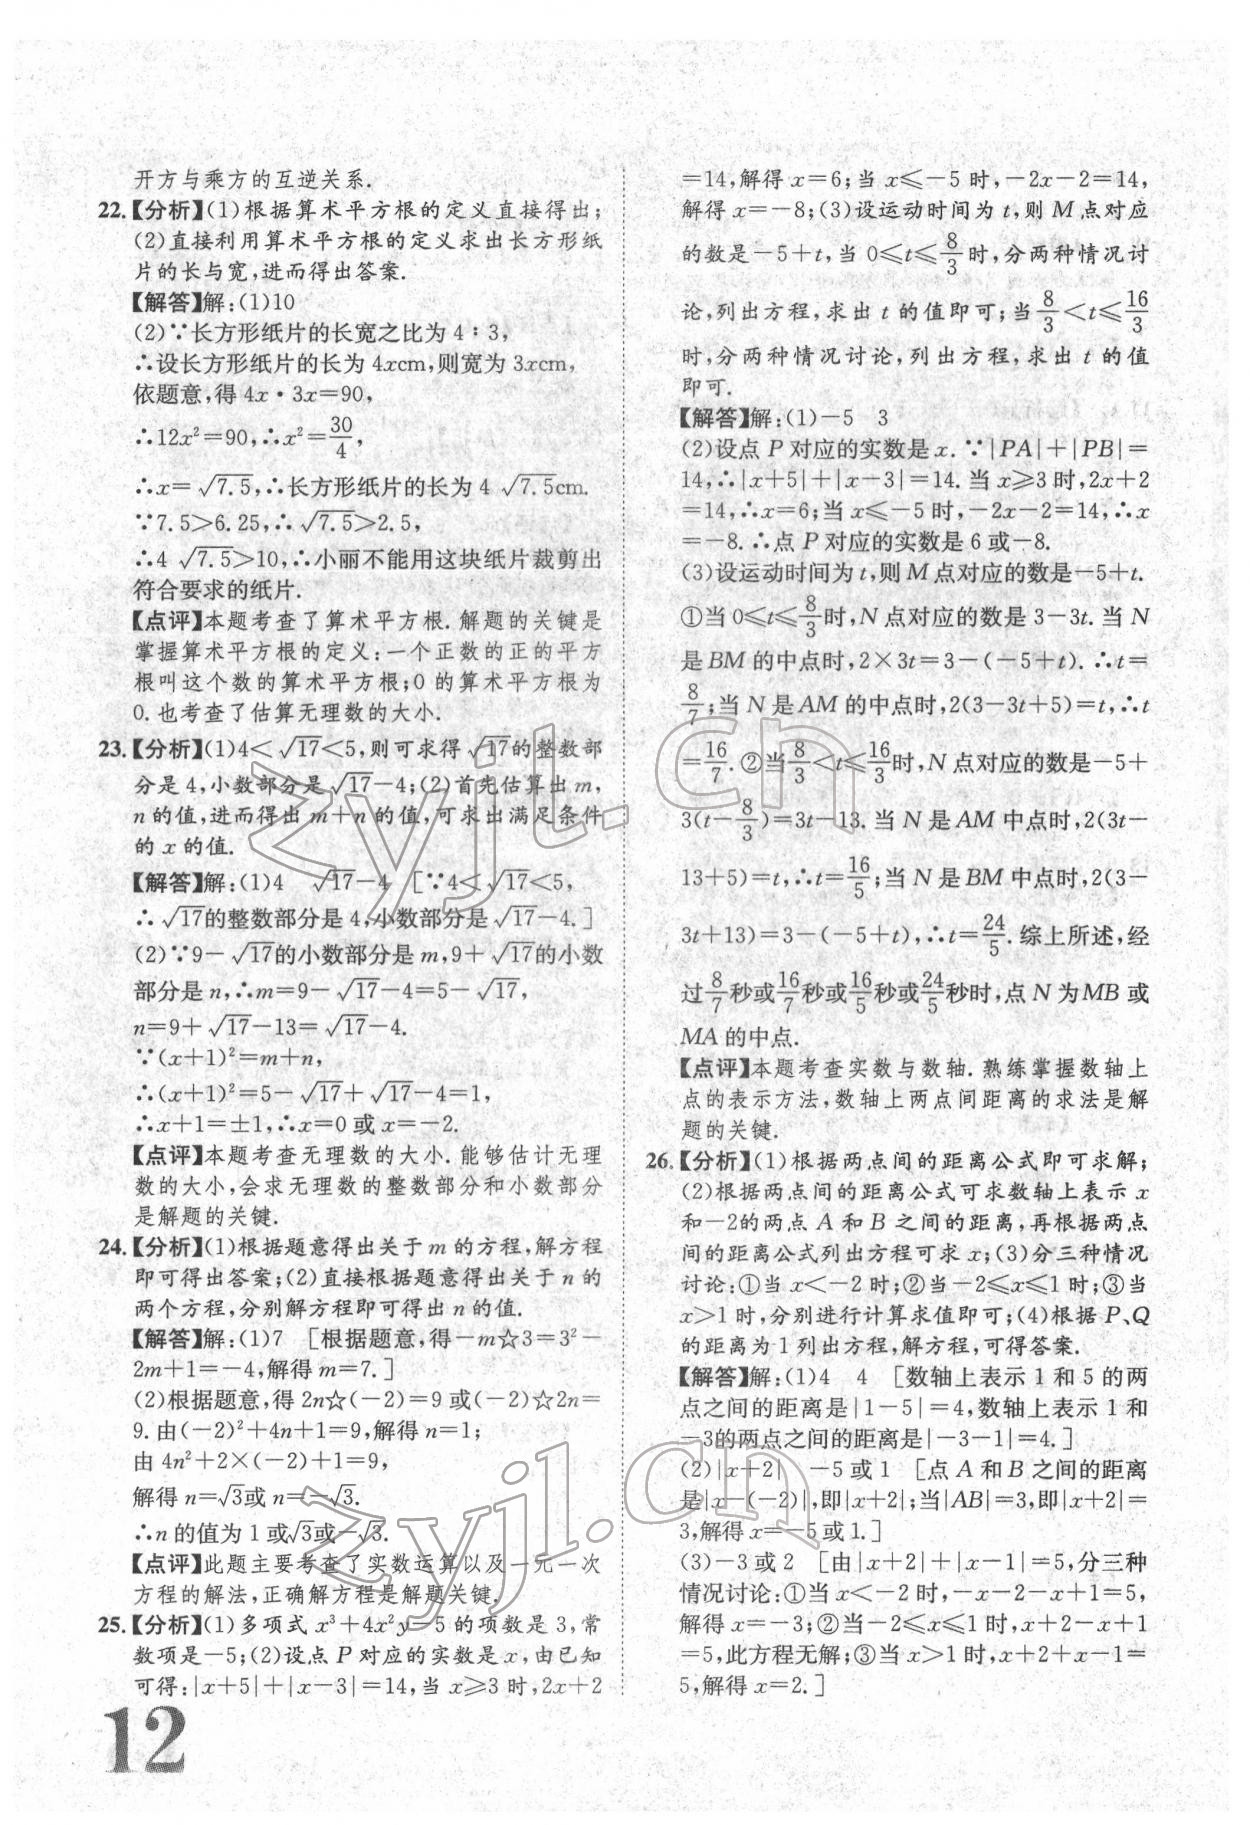 开方与乘方的互逆关系.
22.【分析】(1)根据算术平方根的定义直接得出;
(2)直接利用算术平方根的定义求出长方形纸
片的长与宽,进而得出答案.
【解答】解:(1)10
(2)∵长方形纸片的长宽之比为 4∶3,
∴设长方形纸片的长为 4xcm,则宽为 3xcm,
依题意,得 4x·3x=90,
∴12x²=90,∴x²=30/4,
∴x=√7.5,∴长方形纸片的长为 4√7.5cm.
∵7.5>6.25,∴√7.5>2.5,
∴4√7.5>10,∴小丽不能用这块纸片裁剪出
符合要求的纸片.
【点评】本题考查了算术平方根.解题的关键是
掌握算术平方根的定义:一个正数的正的平方
根叫这个数的算术平方根;0 的算术平方根为
0.也考查了估算无理数的大小.
23.【分析】(1)4<√17<5,则可求得√17的整数部
分是 4,小数部分是√17-4;(2)首先估算出 m,
n 的值,进而得出 m+n 的值,可求出满足条件
的 x 的值.
【解答】解:(1)4 √17-4 [∵4<√17<5,
∴√17的整数部分是 4,小数部分是√17-4.]
(2)∵9-√17的小数部分是 m,9+√17的小数
部分是 n,∴m=9-√17-4=5-√17,
n=9+√17-13=√17-4.
∵(x+1)²=m+n,
∴(x+1)²=5-√17+√17-4=1,
∴x+1=±1,∴x=0 或 x=-2.
【点评】本题考查无理数的大小.能够估计无理
数的大小,会求无理数的整数部分和小数部分
是解题的关键.
24.【分析】(1)根据题意得出关于 m 的方程,解方程
即可得出答案;(2)直接根据题意得出关于 n 的
两个方程,分别解方程即可得出 n 的值.
【解答】解:(1)7 [根据题意,得-m☆3=3²-
2m+1=-4,解得 m=7.]
(2)根据题意,得 2n☆(-2)=9 或(-2)☆2n=
9.由(-2)²+4n+1=9,解得 n=1;
由 4n²+2×(-2)+1=9,
解得 n=√3或 n=-√3.
∴n 的值为 1 或√3或-√3.
【点评】此题主要考查了实数运算以及一元一次
方程的解法,正确解方程是解题关键.
25.【分析】(1)多项式 x³+4x²y-5 的项数是 3,常
数项是-5;(2)设点 P 对应的实数是 x,由已知
可得:|x+5|+|x-3|=14,当 x≥3 时,2x+2
12
=14,解得 x=6;当 x≤-5 时,-2x-2=14,
解得 x=-8;(3)设运动时间为 t,则 M 点对应
的数是-5+t,当 0≤t≤8/3时,分两种情况讨
论,列出方程,求出 t 的值即可;当8/3<t≤16/3
时,分两种情况讨论,列出方程,求出 t 的值
即可.
【解答】解:(1)-5 3
(2)设点 P 对应的实数是 x.∵|PA|+|PB|=
14,∴|x+5|+|x-3|=14.当 x≥3 时,2x+2
=14,∴x=6;当 x≤-5 时,-2x-2=14,∴x
=-8.∴点 P 对应的实数是 6 或-8.
(3)设运动时间为 t,则 M 点对应的数是-5+t.
①当 0≤t≤8/3时,N 点对应的数是 3-3t.当 N
是 BM 的中点时,2×3t=3-(-5+t).∴t=
8/7;当 N 是 AM 的中点时,2(3-3t+5)=t,∴t
=16/7.②当8/3<t≤16/3时,N 点对应的数是-5+
3(t-8/3)=3t-13.当 N 是 AM 中点时,2(3t-
13+5)=t,∴t=16/5;当 N 是 BM 中点时,2(3-
3t+13)=3-(-5+t),∴t=24/5.综上所述,经
过8/7秒或16/7秒或16/5秒或24/5秒时,点 N 为MB 或
MA 的中点.
【点评】本题考查实数与数轴.熟练掌握数轴上
点的表示方法,数轴上两点间距离的求法是解
题的关键.
26.【分析】(1)根据两点间的距离公式即可求解;
(2)根据两点间的距离公式可求数轴上表示 x
和-2的两点 A 和 B 之间的距离,再根据两点
间的距离公式列出方程可求 x;(3)分三种情况
讨论:①当 x<-2 时;②当-2≤x≤1 时;③当
x>1 时,分别进行计算求值即可;(4)根据 P、Q
的距离为 1 列出方程,解方程,可得答案.
【解答】解:(1)4 4 [数轴上表示 1 和 5 的两
点之间的距离是|1-5|=4,数轴上表示 1 和
-3的两点之间的距离是|-3-1|=4.]
(2)|x+2| -5或 1 [点 A 和 B 之间的距离
是|x-(-2)|,即|x+2|;当|AB|=3,即|x+2|=
3,解得 x=-5或1.]
(3)-3 或 2 [由|x+2|+|x-1|=5,分三种
情况讨论:①当 x<-2 时,-x-2-x+1=5,
解得 x=-3;②当-2≤x≤1 时,x+2-x+1
=5,此方程无解;③当 x>1 时,x+2+x-1=
5,解得 x=2.]
zyjl.cn
zyjl.cn